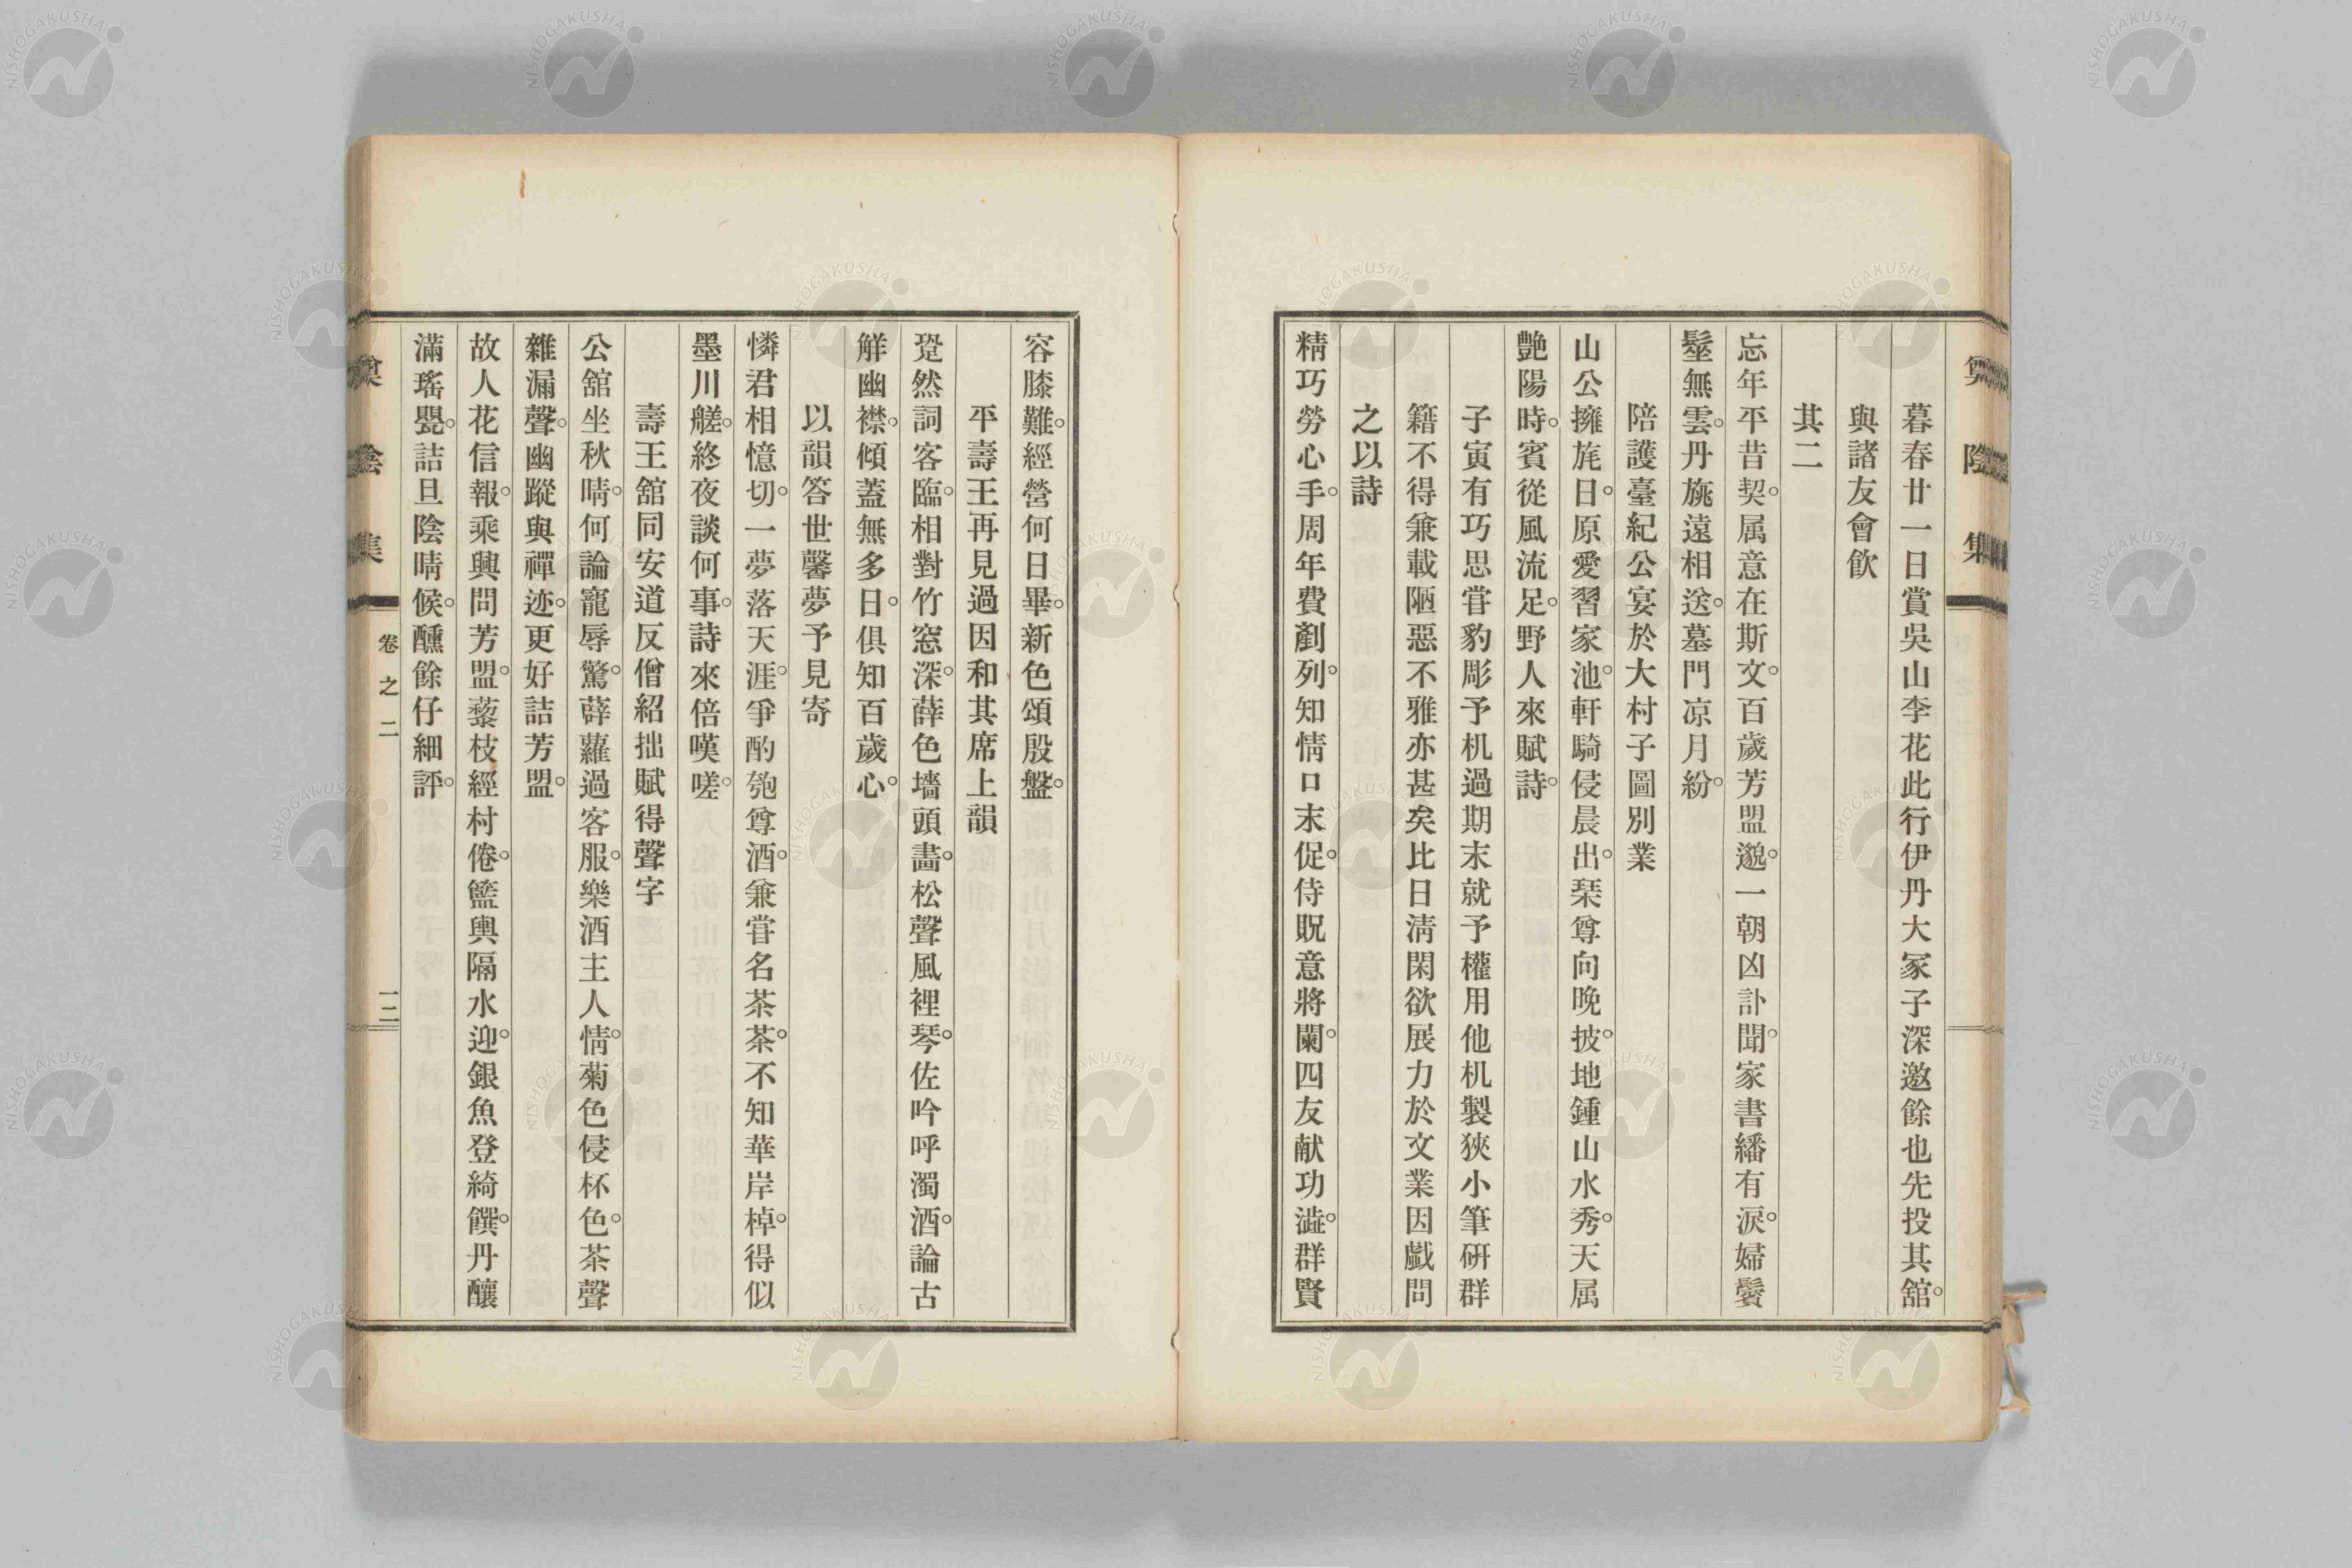 暮春廿一日賞吳山李花此行伊丹大冢子深邀餘也先投其舘。
與諸友會飲
其二
忘年平昔契。属意在斯文。百歲芳盟邈。一朝凶訃聞。家書繙有淚。婦鬢
髽無雲。丹旐遠相送。墓門凉月紛。
陪護臺紀公宴於大村子圖別業
山公擁旄日。原愛習家池。軒騎侵晨出。琹尊向晚披。地鍾山水秀。天属
艷陽時。賓從風流足。野人來賦詩。
子寅有巧思甞豹彫予机過期末就予權用他机製狹小筆硏群
籍不得兼載陋惡不雅亦甚矣比日淸閑欲展力於文業因戱問
之以詩
精巧勞心手。周年費剷列。知情口末促。侍貺意將闌。四友献功澁。群賢
容膝難。經營何日畢。新色頌殷盤。
平壽王再見過因和其席上韻
跫然詞客臨。相對竹窓深。薛色墻頭畵。松聲風裡琴。佐吟呼濁酒。論古
觧幽襟。傾蓋無多日。俱知百歲心。
以韻答世馨夢予見寄
憐君相憶切。一夢落天涯。爭酌匏尊酒。兼甞名茶茶。不知華岸棹。得似
墨川艖。終夜談何事。詩來倍嘆嗟。
壽王舘同安道反僧紹拙賦得聲字
公舘坐秋晴。何論寵辱驚。薜蘿過客服。樂酒主人情。菊色侵杯色。茶聲
雜漏聲。幽蹤與禪迹。更好詰芳盟。
故人花信報。乘興問芳盟。藜枝經村倦。籃輿隔水迎。銀魚登綺饌。丹釀
滿瑤甖。詰旦陰晴候。醺餘仔細評。
卷之二
一二
NISHOGAKUSHA